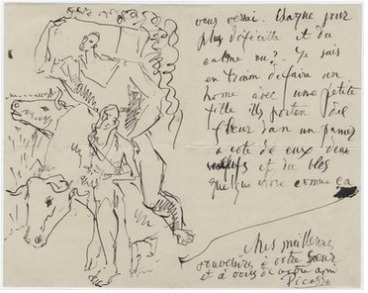 vous verai. Chaque jour
plus dificille et du
calme ou? Je suis
en train de faire un
home avec une petite
fille ils porten des
fleur dan un panier
a cote de eux deux
et du bles
quelque chose comme ca
Mes meilleurs
souvenirs à votre sœur
et à vous de votre ami
Picasso